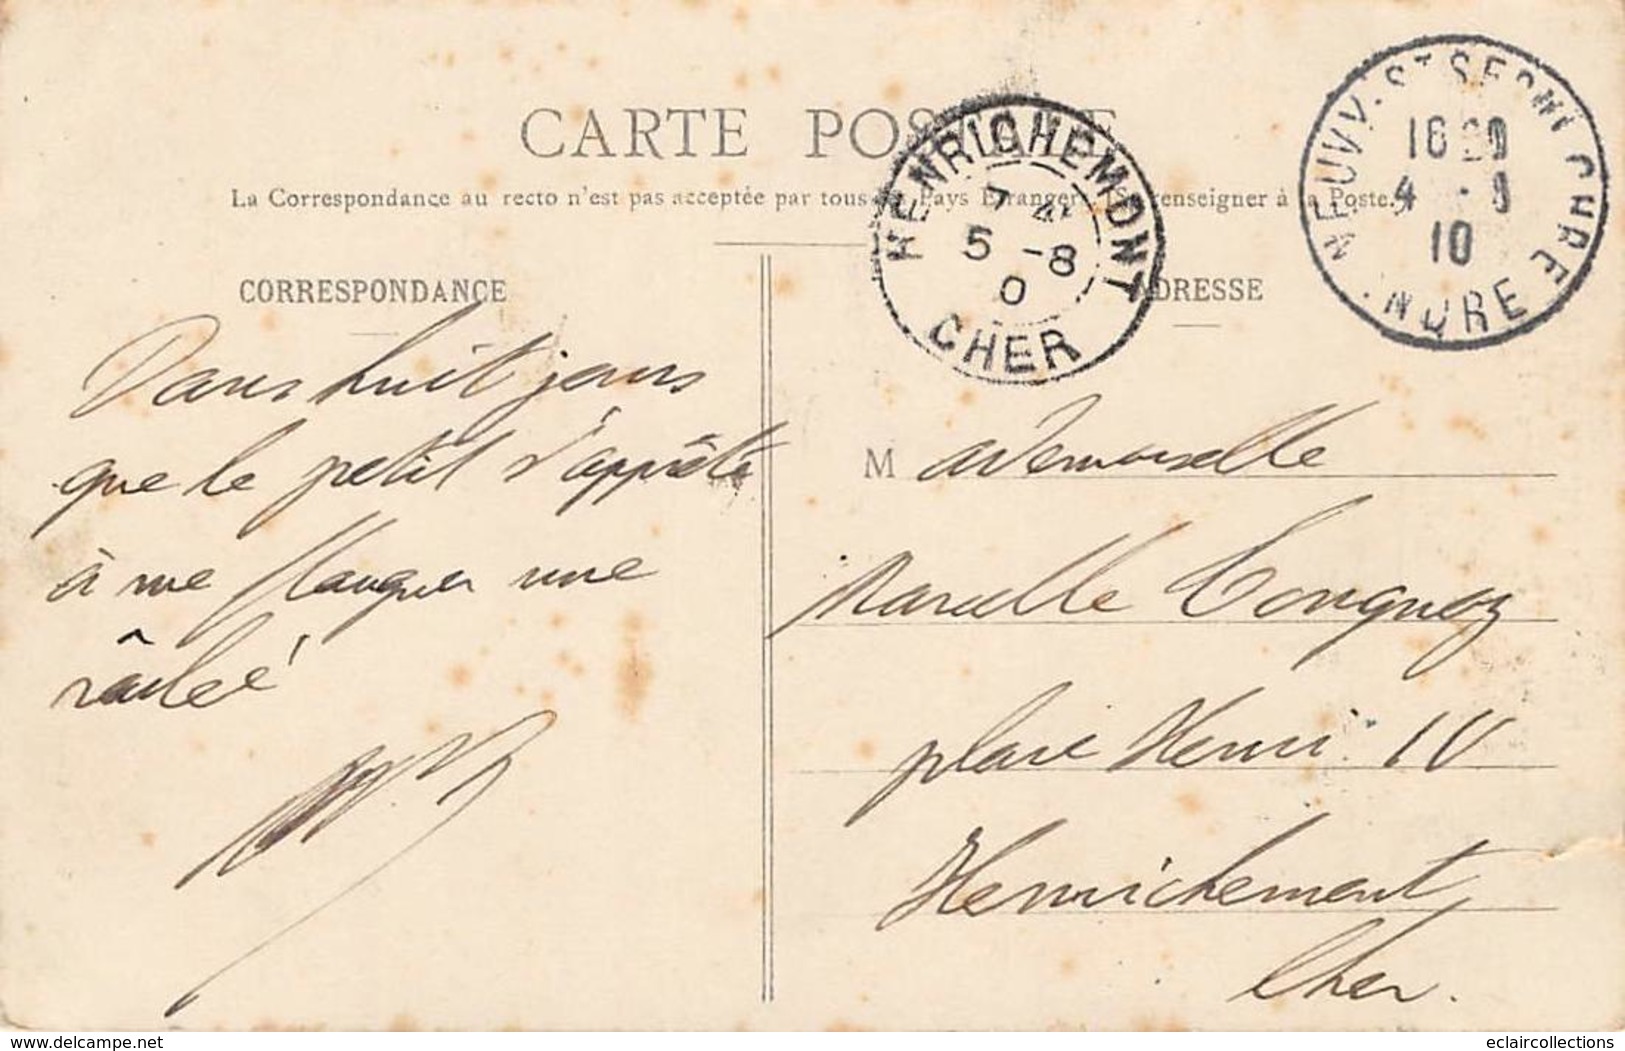 CARTE POSTALE
La Correspondance au recto n'est pas acceptée par tous les Pays Etrangers. Se renseigner à la Poste.
HENRICHEMONT
5 -8
0
CHER
NEUVY-ST SEPULCHRE
4 -8
10
INDRE
CORRESPONDANCE
ADRESSE
Dans huit jours
que le petit s'apprête
à me flanquer une
raclée
M ademoiselle
Marcelle
place Henri IV
Henrichemont
Cher.
delcampe.net
eclaircollections